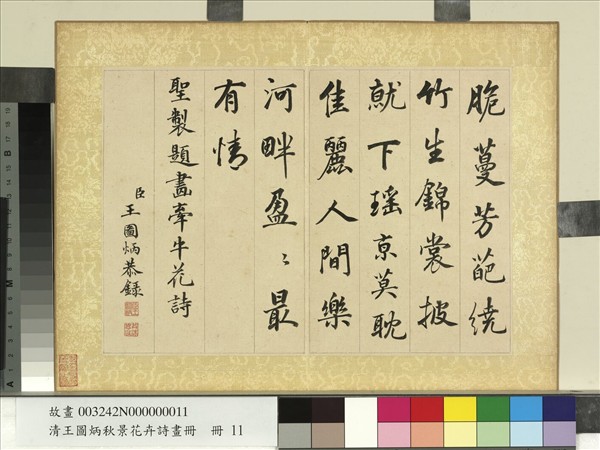 脆蔓芳葩繞
竹生錦裳披
就下瑤京莫耽
佳麗人間樂
河畔盈〻最
有情
聖製題畫牽牛花詩
臣王圖炳恭錄
故畫 003242N000000011
清王圖炳秋景花卉詩畫冊 冊 11